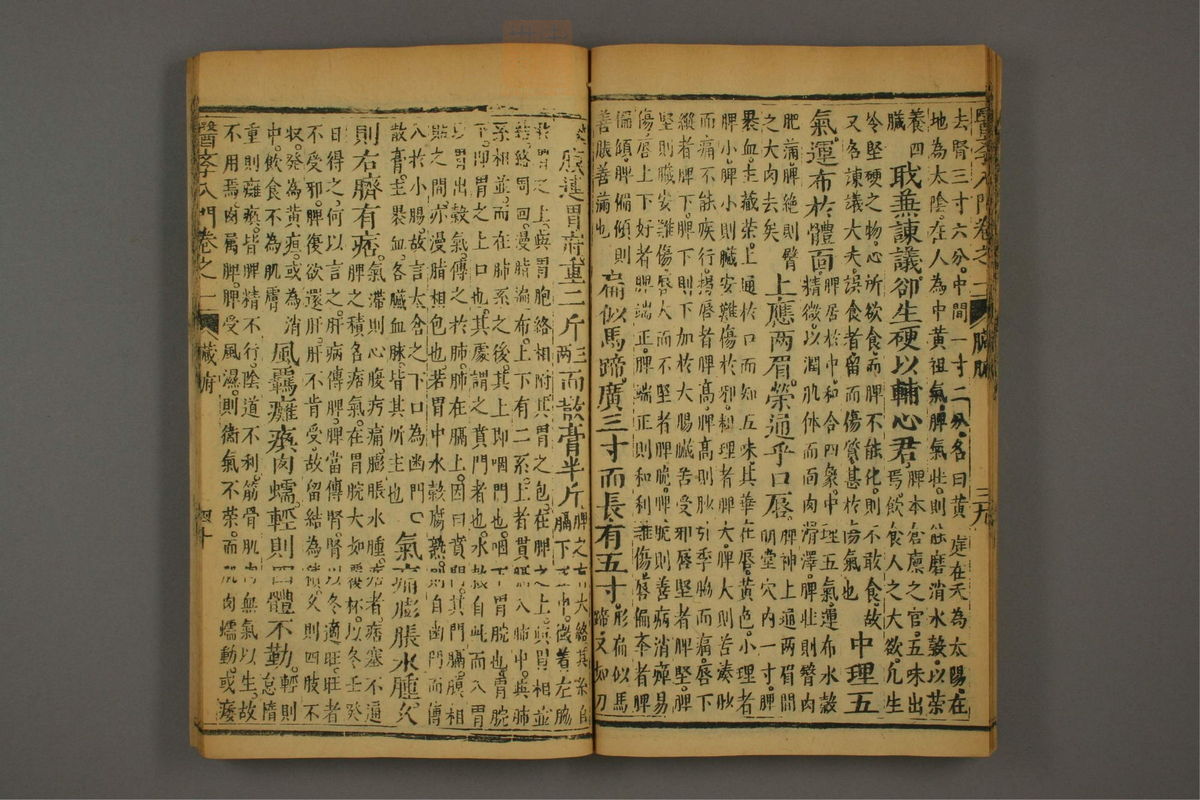 醫學入門 卷之一 臟腑 三九
去腎三寸六分。中間一寸二分。名曰黃庭。在天為太陽。在
地為太陰。在人為中黃祖氣。脾氣壯。則能磨消水穀。以榮
養四
臟
職兼諫議。卻生硬以輔心君。
脾本倉廩之官。五味出
焉。飲食人之大欲。凡生
冷堅硬之物。心所欲食。而脾不能化。則不敢食。故
又名諫議大夫。誤食者留而傷質。甚於傷氣也
中理五
氣。運布於體面
脾居於中。和合四象。中理五氣。運布水穀
精微。以潤肌体而面肉滑澤。脾壯則臀肉
肥滿。脾絕則臂
之大肉去矣
上應两眉。榮通乎口唇。
脾神上通两眉間
明堂穴內一寸。脾
裹血。主藏榮。上通於口而知五味。其華在唇。黃色。小理者
脾小。脾小則臟安。難傷於邪。粗理者脾大。脾大則苦湊䏚
而痛。不能疾行。揭唇者脾高。脾高則䏚引季脇而痛。唇下
縱者脾下。脾下則下加於大腸。臟苦受邪。唇堅者脾堅。脾
堅則臟安難傷。唇大而不堅者脾脆。脾脆則善病消癉易
傷。唇上下好者脾端正。脾端正則和利難傷。唇偏舉者脾
偏傾。脾偏傾則
善脹善滿也
扁似馬蹄。廣三寸而長有五寸。
形扁似馬
蹄。又如刀
膜連胃府。重二斤
三
两
而散膏半斤
脾之有大絡。其系自
膈下正中。微著左脇
於胃之上。與胃胞絡相附。其胃之包。在脾之上。與胃相並
結絡周回。漫脂遍布。上下有二系。上者貫膈入肺中。與肺
系相並。而在肺系之後。其上即咽門也。咽下。胃脘也。胃脘
下。即胃之上口也。其處謂之賁門者也。水穀自此而入胃
以胃出穀氣。傳之於肺。肺在膈上。因曰賁門。其門膈膜相
貼之間。亦漫脂相包也。若胃中水穀腐熟。則自幽門而傳
入於小腸。故言太倉之下口為幽門。
散膏主裹血。各臟血脉。皆其所主也
氣痛膨脹水腫。久
則右臍有痞。
氣滯則心腹疞痛。膨脹水腫。痞者。痞塞不通
脾之積名痞氣。在胃脘。大如覆杯。以冬壬癸
日得之。何以言之。肝病傳脾。脾當傳腎。腎以冬適旺。旺者
不受邪。脾復欲還肝。肝不肯受。故留結為積。久則四肢不
収。發為黃疸。或為消
中。飲食不為肌膚
風羈癱瘓肉蠕。輕則四體不勤。
輕則
怠惰
重則癱瘓。皆脾精不行。陰道不利。筋骨肌肉無氣以生。故
不用焉。肉属脾。脾受風濕。則衛氣不榮。而肌肉蠕動。或痿
醫學入門 卷之一 臟腑 四十